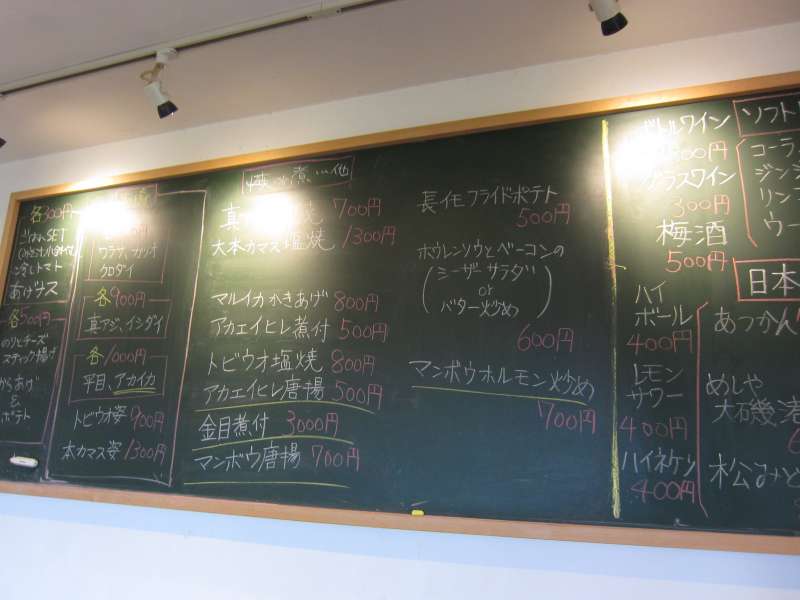 各300円
ごはんSET
冷しトマト
あげナス
各500円
のりとチーズ
スティック揚げ
からあげ
&
ポテト
ワラサ、カツオ
クロダイ
各900円
真アジ、イシダイ
各1000円
平目、アカイカ
トビウオ姿 900円
本カマス姿 1300円
焼・煮…他
真 焼 700円
大本カマス塩焼 1300円
マルイカかきあげ 800円
アカエイヒレ煮付 500円
トビウオ塩焼 800円
アカエイヒレ唐揚 500円
金目煮付 3000円
マンボウ唐揚 700円
長イモフライドポテト
500円
ホウレンソウとベーコンの
シーザーサラダ
or
バター炒め
600円
マンボウホルモン炒め
700円
ボトルワイン
00円
グラスワイン
300円
梅酒
500円
ハイ
ボール
400円
レモン
サワー
400円
ハイネケン
400円
ソフト
コーラ
ジンジ
リンゴ
ウー
日本
あつかん
めしや
大磯渚
松みど